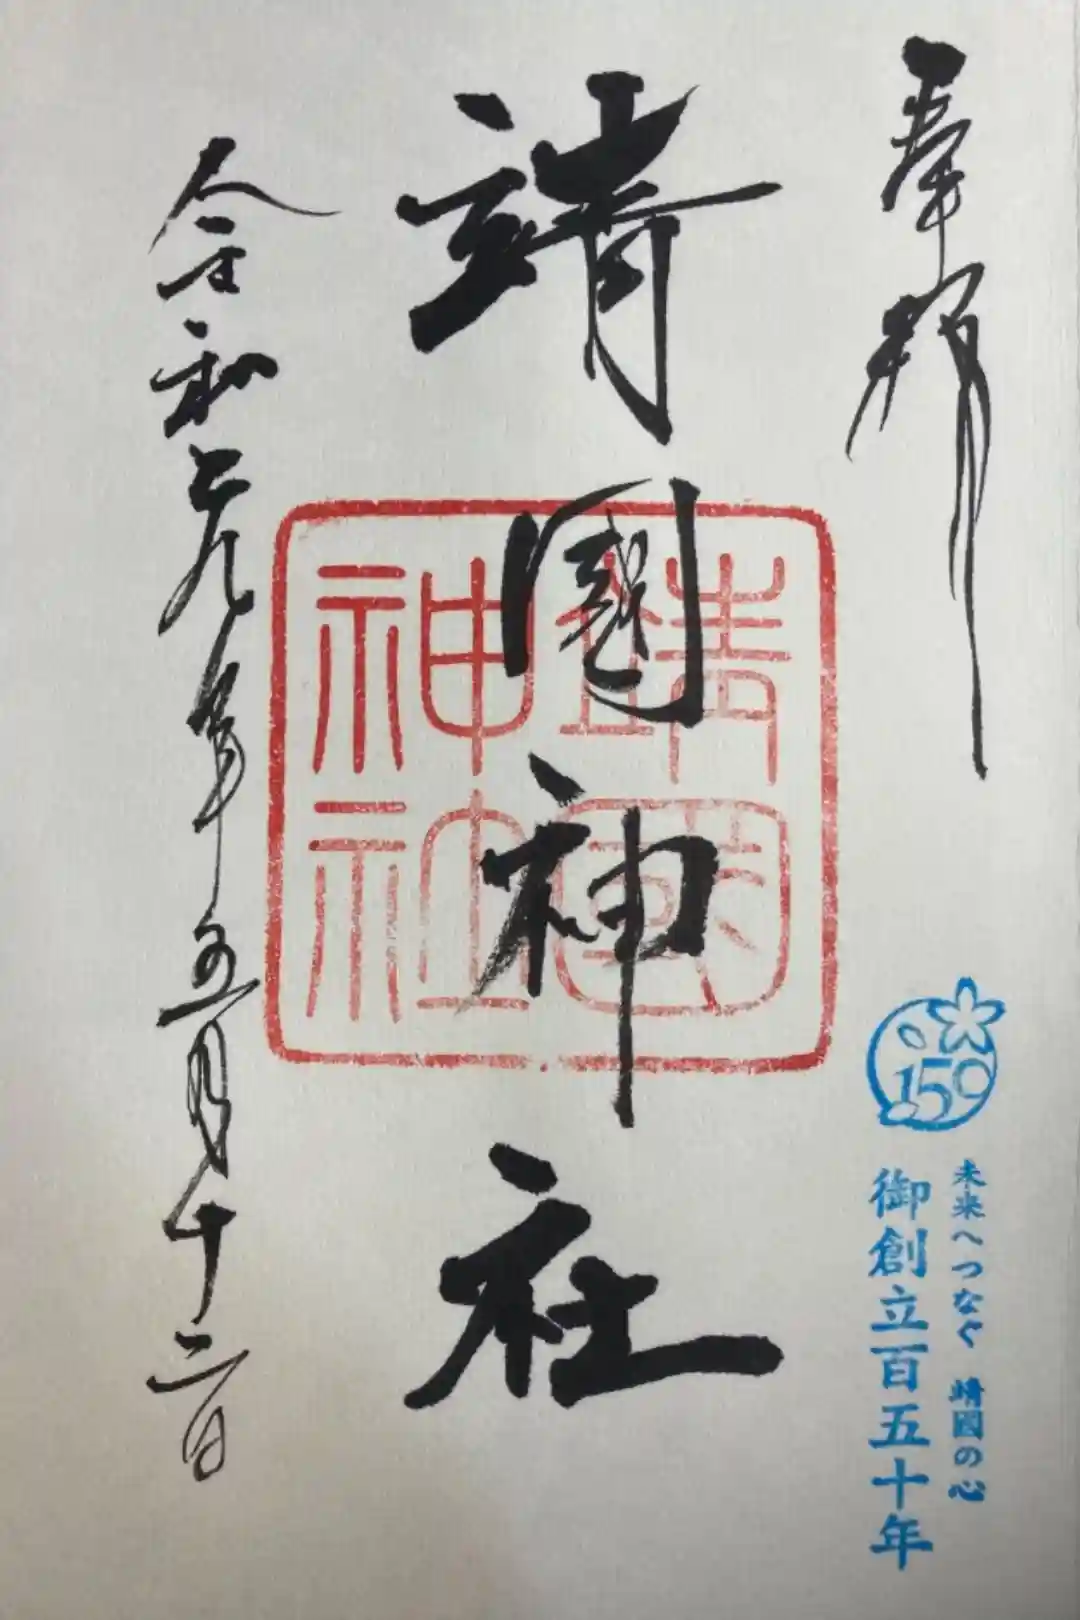 奉拝
150
未来へつなぐ 靖國の心
御創立百五十年
靖國神社
靖國神社
令和元年五月十二日